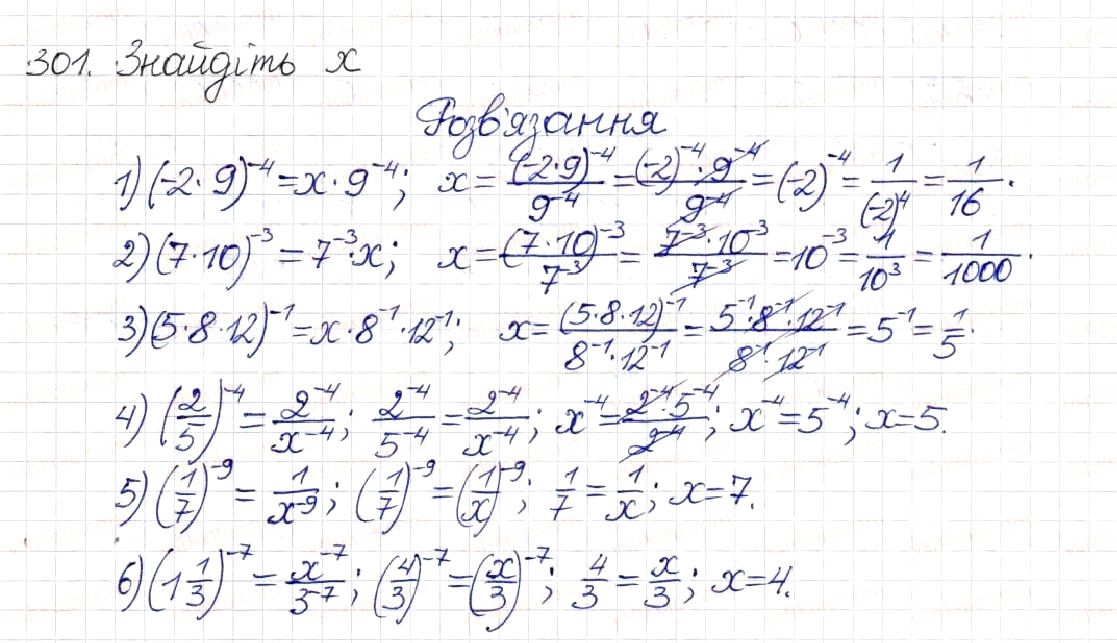 301. Знайдіть x
Розв'язання
1) (-2·9)⁻⁴ = x·9⁻⁴; x = (-2·9)⁻⁴/9⁻⁴ = (-2)⁻⁴·9⁻⁴/9⁻⁴ = (-2)⁻⁴ = 1/(-2)⁴ = 1/16.
2) (7·10)⁻³ = 7⁻³·x; x = (7·10)⁻³/7⁻³ = 7⁻³·10⁻³/7⁻³ = 10⁻³ = 1/10³ = 1/1000.
3) (5·8·12)⁻¹ = x·8⁻¹·12⁻¹; x = (5·8·12)⁻¹/8⁻¹·12⁻¹ = 5⁻¹·8⁻¹·12⁻¹/8⁻¹·12⁻¹ = 5⁻¹ = 1/5.
4) (2/5)⁻⁴ = 2⁻⁴/x⁻⁴; 2⁻⁴/5⁻⁴ = 2⁻⁴/x⁻⁴; x⁻⁴ = 2⁻⁴·5⁻⁴/2⁻⁴; x⁻⁴ = 5⁻⁴; x = 5.
5) (1/7)⁻⁹ = 1/x⁻⁹; (1/7)⁻⁹ = (1/x)⁻⁹; 1/7 = 1/x; x = 7.
6) (1 1/3)⁻⁷ = x⁻⁷/3⁻⁷; (4/3)⁻⁷ = (x/3)⁻⁷; 4/3 = x/3; x = 4.